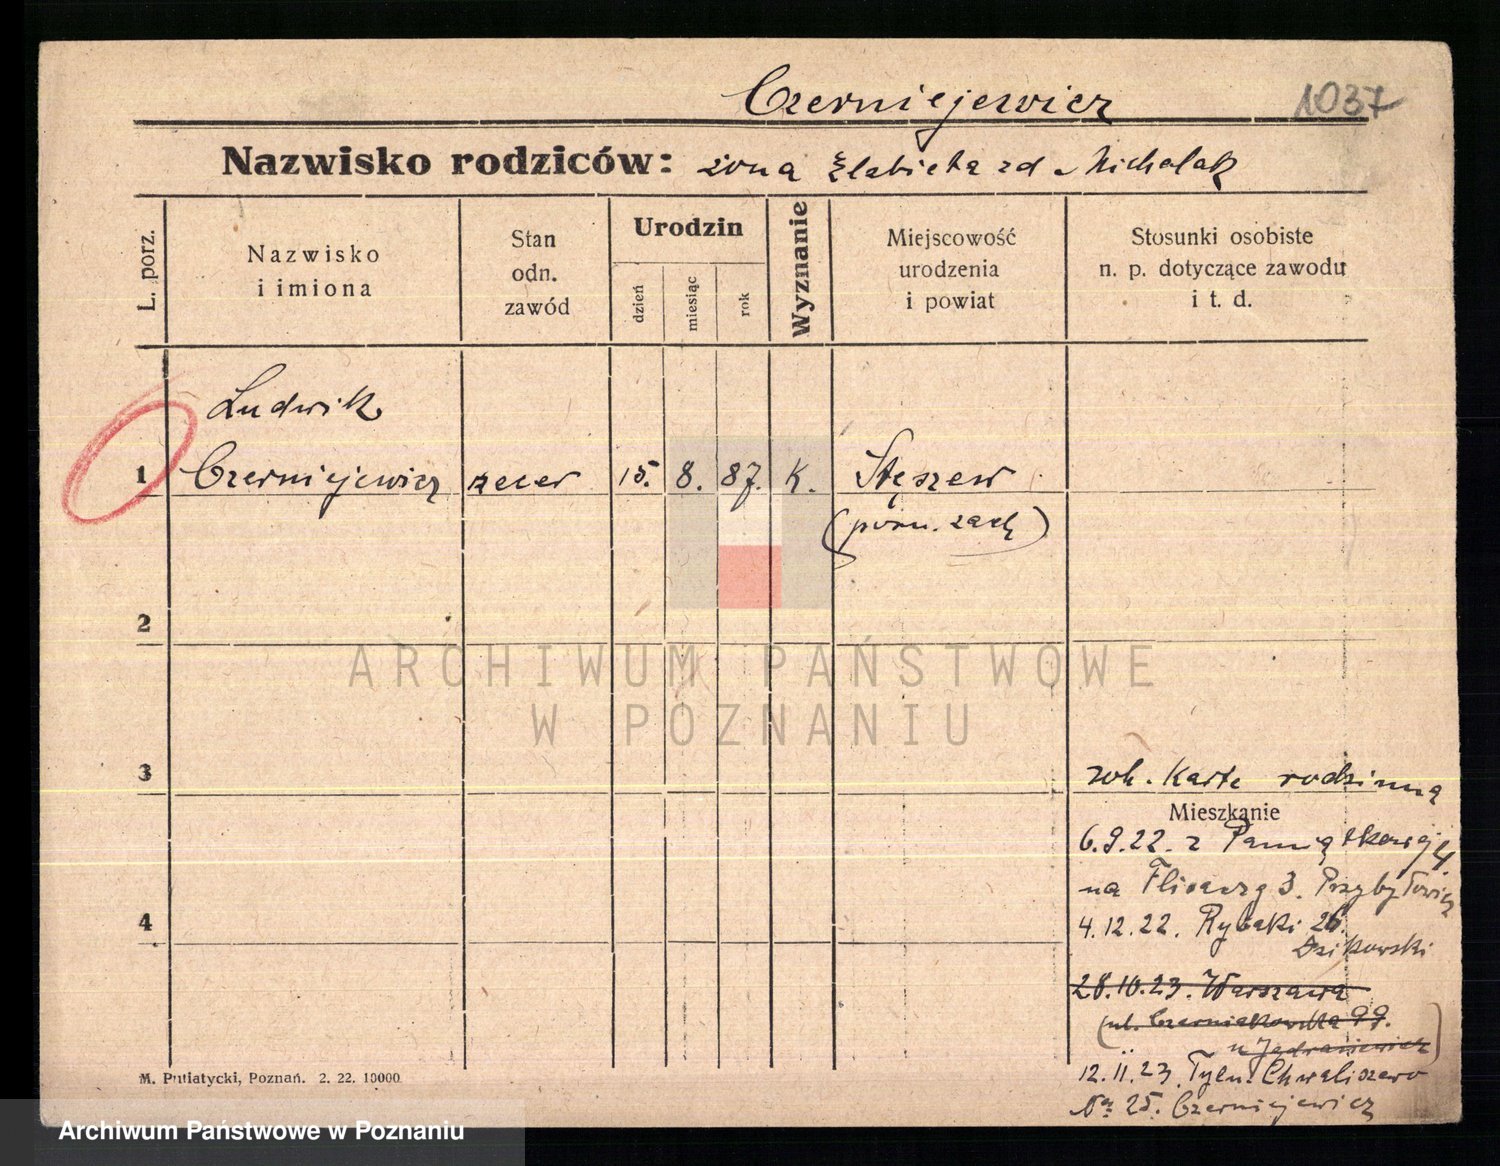 Czerniejewicz
1037
Nazwisko rodziców: żona Elżbieta zd Michalak
L. porz.
Nazwisko
i imiona
Stan
odn.
zawód
Urodzin
dzień
miesiąc
rok
Wyznanie
Miejscowość
urodzenia
i powiat
Stosunki osobiste
n. p. dotyczące zawodu
i t. d.
Ludwik
1 Czerniejewicz zecer 15. 8. 87. K. Stęszew
(pozn. zach)
2
ARCHIWUM PAŃSTWOWE
W POZNANIU
3
zob. Kartę rodzinną
Mieszkanie
6.9.22. z Pamiątkowej
na Flisacza 3. Przybyłowicz
4
4.12.22. Rybaki 26.
Dzikowski
28.10.23. Warszawa
(ul. Czerniakowska 99.
u
12.II.23. Tyln. Chwaliszewo
No 25. Czerniejewicz
M. Putiatycki, Poznań. 2. 22. 10000
Archiwum Państwowe w Poznaniu